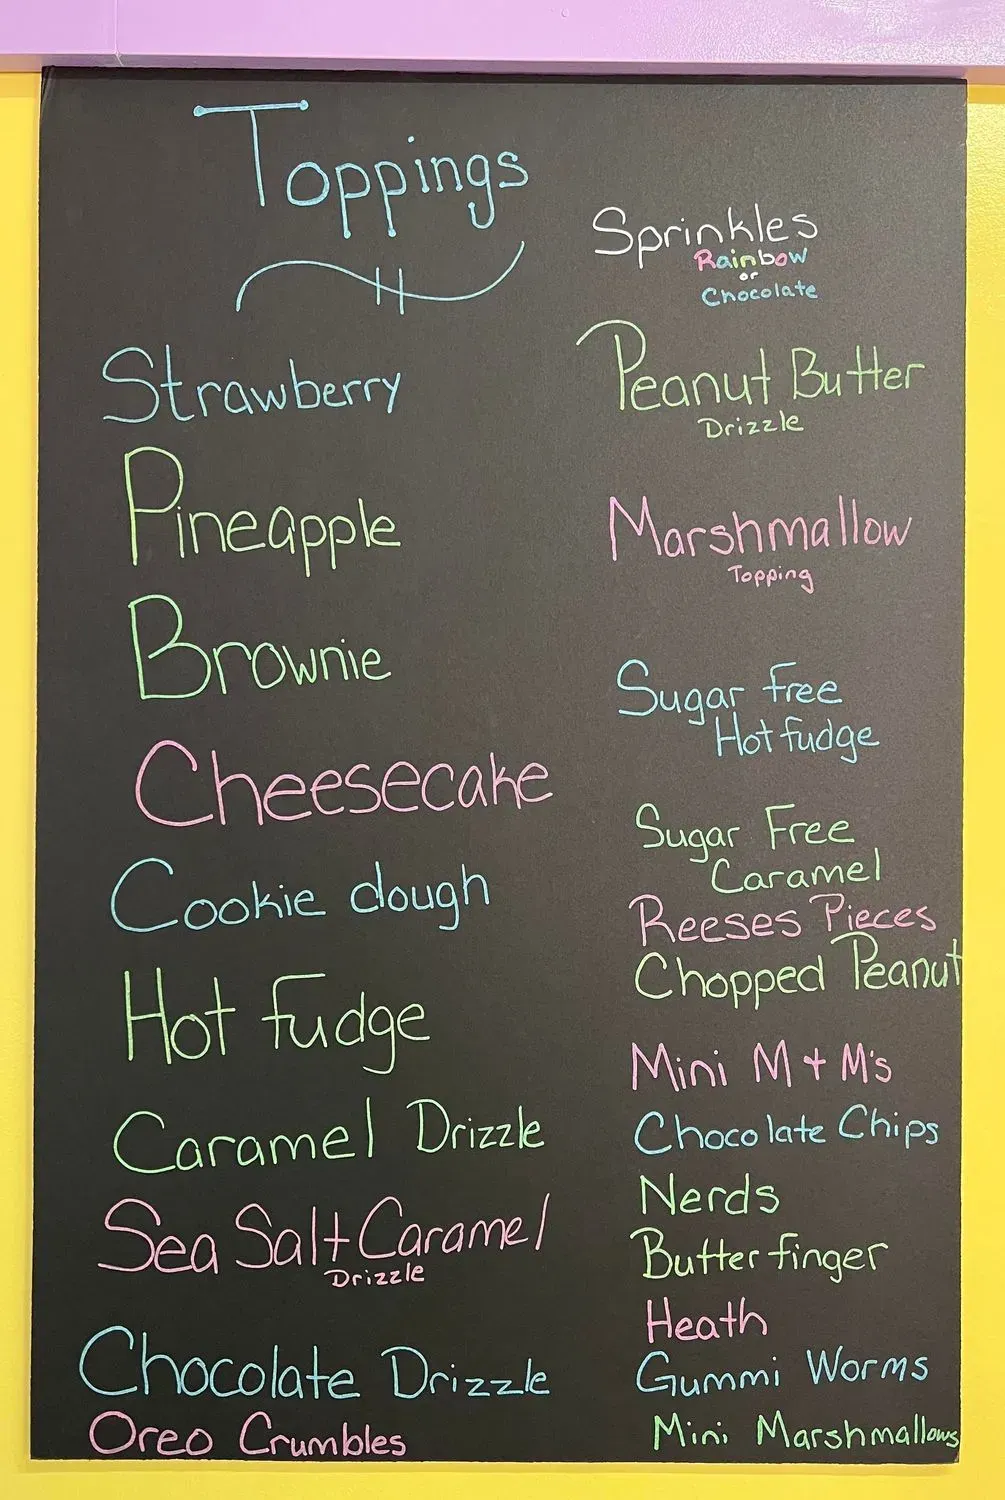 Toppings
Strawberry
Pineapple
Brownie
Cheesecake
Cookie dough
Hot fudge
Caramel Drizzle
Sea Salt Caramel
Drizzle
Chocolate Drizzle
Oreo Crumbles
Sprinkles
Rainbow
or
Chocolate
Peanut Butter
Drizzle
Marshmallow
Topping
Sugar free
Hot fudge
Sugar Free
Caramel
Reeses Pieces
Chopped Peanut
Mini M + M's
Chocolate Chips
Nerds
Butterfinger
Heath
Gummi Worms
Mini Marshmallows